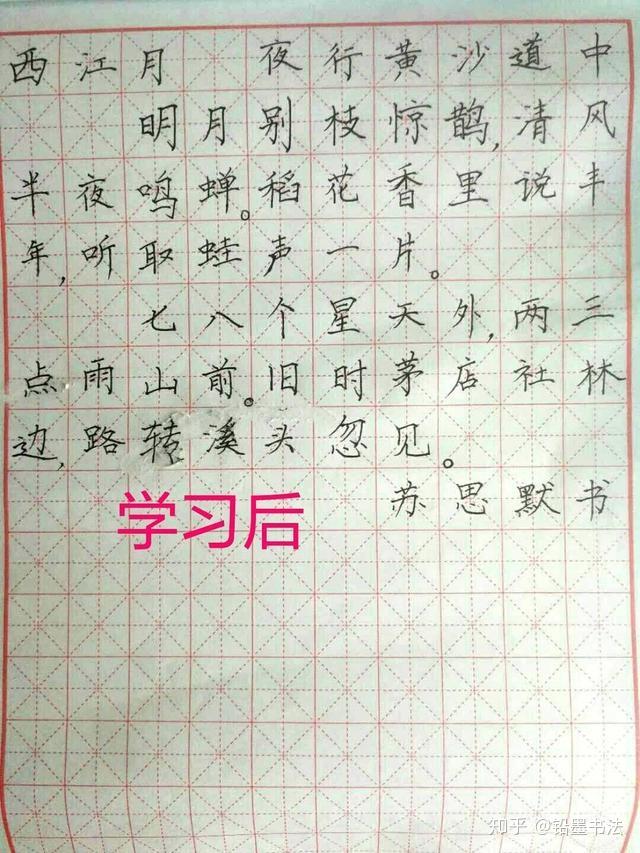 西江月 夜行黄沙道中
明月别枝惊鹊,清风
半夜鸣蝉。稻花香里说丰
年,听取蛙声一片。
七八个星天外,两三
点雨山前。旧时茅店社林
边,路转溪头忽见。
苏思默书
学习后
知乎 @铅墨书法